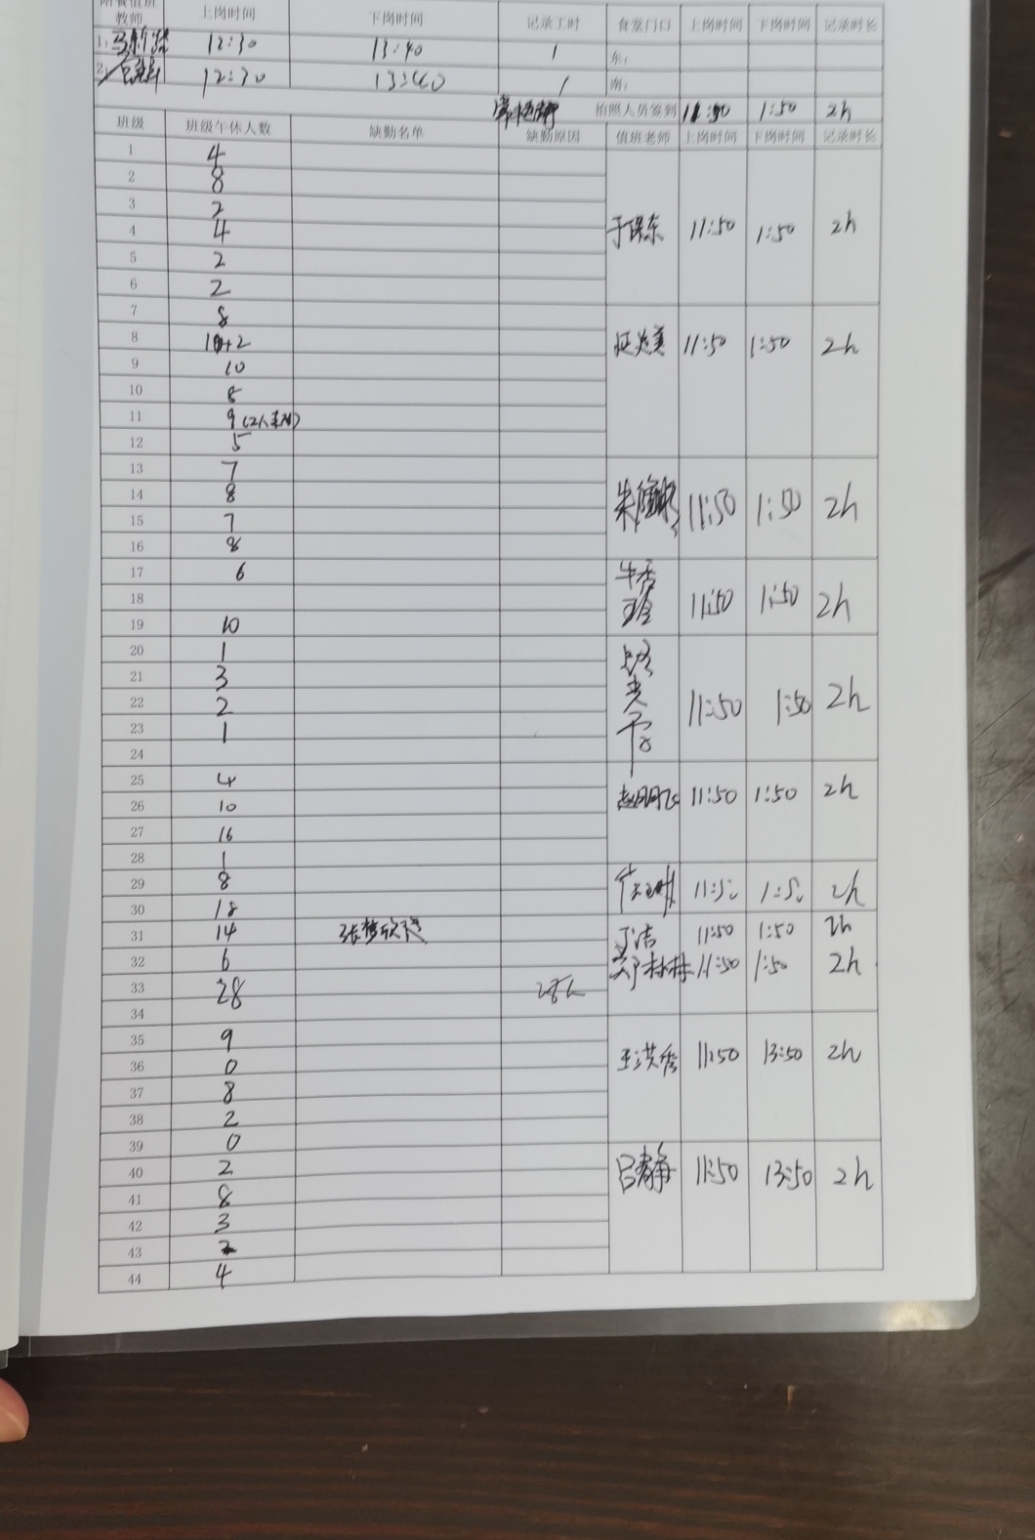 教师 上岗时间 下岗时间 记录工时 食堂门口 上岗时间 下岗时间 记录时长
1: 12:30 13:40 1 东:
2: 12:30 13:40 1 南:
拍照人员签到 11:50 1:50 2h
班级 班级午休人数 缺勤名单 缺勤原因 值班老师 上岗时间 下岗时间 记录时长
1 4
2 8
3 2
4 4 于保东 11:50 1:50 2h
5 2
6 2
7 8
8 10+2 11:50 1:50 2h
9 10
10 8
11 9
12 5
13 7
14 8 11:50 1:50 2h
15 7
16 8
17 6
18 牛秀玲 11:50 1:50 2h
19 10
20 1
21 3
22 2 11:50 1:50 2h
23 1
24
25 4
26 10 11:50 1:50 2h
27 16
28 1
29 8 11:50 1:50 2h
30 18
31 14 丁洁 11:50 1:50 2h
32 6 邓林林 11:50 1:50 2h
33 28
34
35 9
36 0 王洪秀 11:50 13:50 2h
37 8
38 2
39 0
40 2 吕静 11:50 13:50 2h
41 8
42 3
43 2
44 4